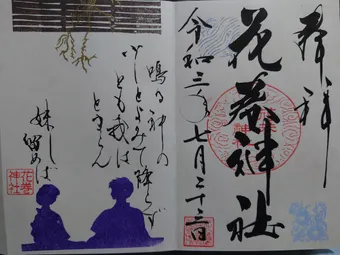 奉拝
花巻神社
令和三年七月二十三日
鳴る神の
少しとよみて降らず
とも我は
とまらん
妹し
留めば
花巻
神社